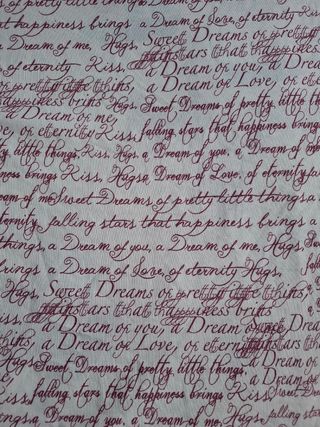 of pretty little things, a Dream of you, a Dream
that happiness brings a Dream of Love, of eternity Kiss
a Dream of me, Hugs, Sweet Dreams of pretty
falling stars that happiness
of eternity Kiss, a Dream of you, a Dream
little things, a Dream of Love, or eternity
happiness brins Hugs, Sweet Dreams of pretty little th
a Dream of me
e, or eternity Kiss, falling, stars that happiness brings
y, little things, Kiss, Hugs, a Dream of you, a Dream of
iness brings Kiss, Hugs a Dream of Love, of eternity fa
eam of me Sweet Dreams of pretty little things, a
ternity, falling stars that happiness brings a
things, a Dream of you, a Dream of me, Hugs
brings a Dream of Love, of eternity Hugs,
Hugs, Sweet Dreams or pretty little thins,
stars that happiness brins
a Dream or you, a Dream or me
Kiss, a Dream or Love, or eternity
Hugs, Sweet Dreams of pretty little things,
a Dream of
Kiss, falling, stars that happiness brings
ings, a Dream of you, a Dream of me, Kiss, Hugs falling sta